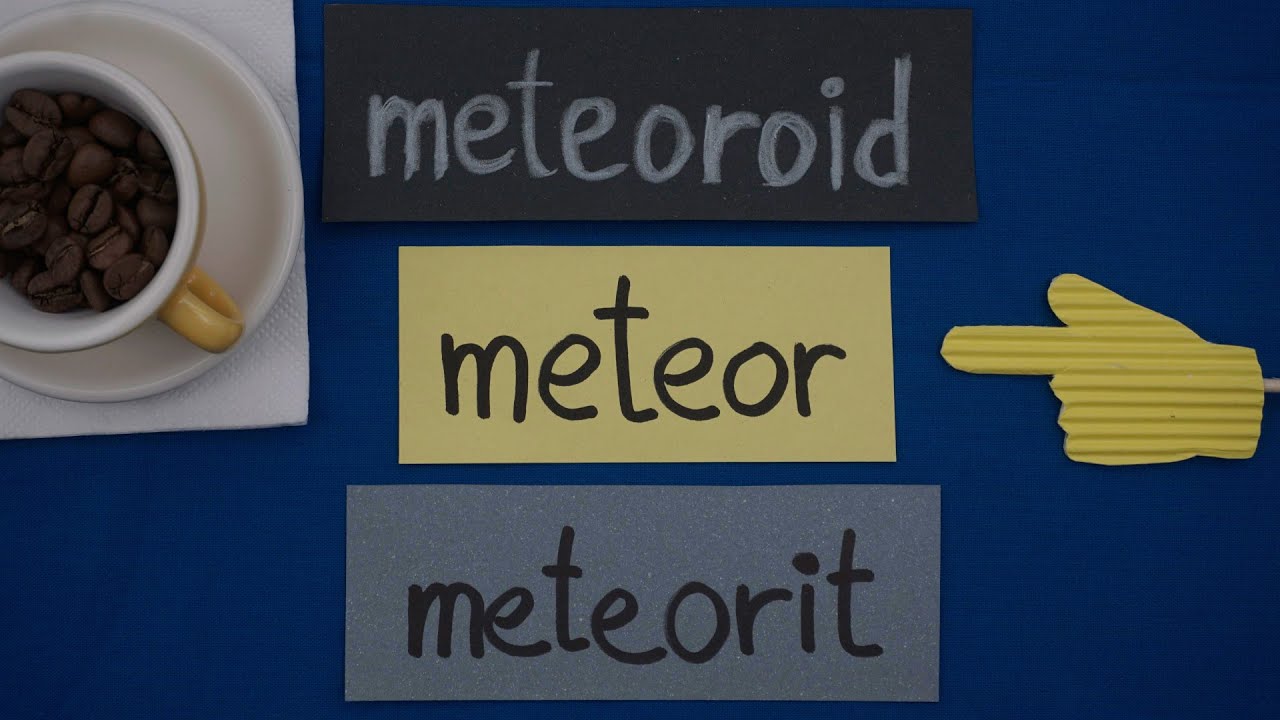 meteoroid
meteor
meteorit